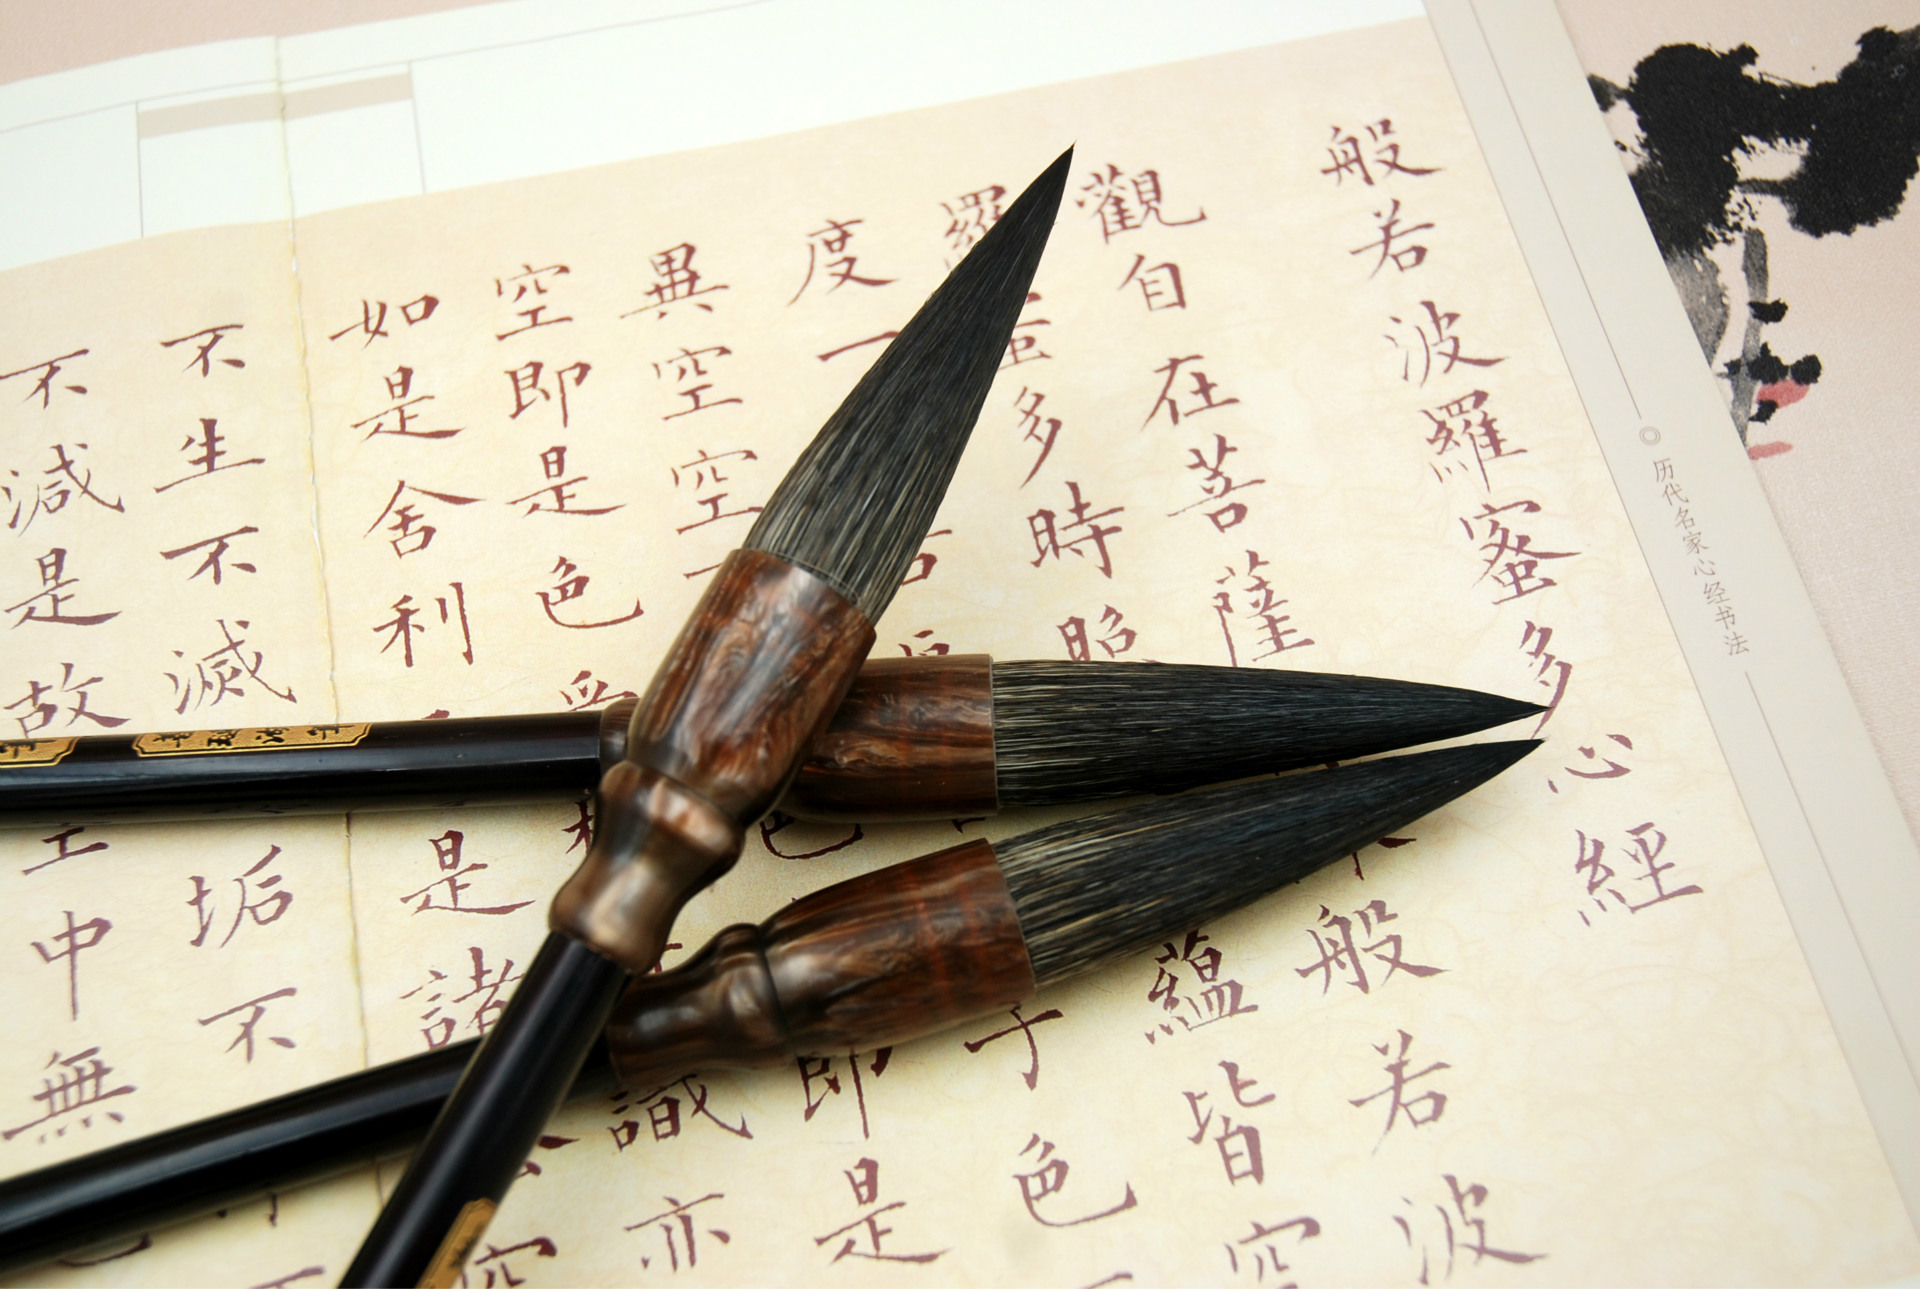 般若波羅蜜多心經
觀自在菩薩般若波
羅蜜多時照蘊皆空
度一子色
異空空色即是
空即是色受識亦
如是舍利是諸空
不生不滅垢不
不減是故空中無
历代名家心经书法